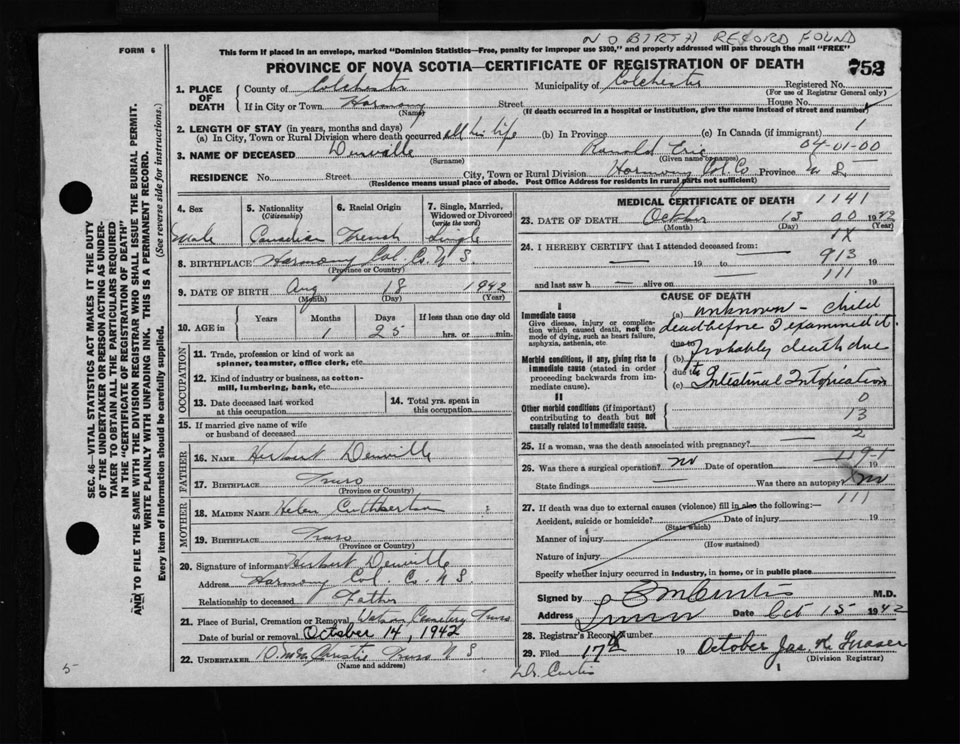 NO BIRTH RECORD FOUND
FORM 6
This form if placed in an envelope, marked "Dominion Statistics—Free, penalty for improper use $300," and properly addressed will pass through the mail "FREE"
PROVINCE OF NOVA SCOTIA—CERTIFICATE OF REGISTRATION OF DEATH 752
1. PLACE OF DEATH County of Colchester Municipality of Colchester Registered No.
(For use of Registrar General only)
If in City or Town Harmony Street House No.
(Name) (If death occurred in a hospital or institution, give the name instead of street and number)
2. LENGTH OF STAY (in years, months and days)
(a) In City, Town or Rural Division where death occurred all his life (b) In Province (c) In Canada (if immigrant) 1
3. NAME OF DECEASED Denville Ranold Eric 04-01-00
(Surname) (Given name or names)
RESIDENCE No. Street City, Town or Rural Division Harmony Col. Co Province N S.
(Residence means usual place of abode. Post Office Address for residents in rural parts not sufficient)
SEC. 46—VITAL STATISTICS ACT MAKES IT THE DUTY
OF THE UNDERTAKER OR PERSON ACTING AS UNDER-
TAKER TO OBTAIN ALL THE PARTICULARS REQUIRED
IN THE "CERTIFICATE OF REGISTRATION OF DEATH"
AND TO FILE THE SAME WITH THE DIVISION REGISTRAR WHO SHALL ISSUE THE BURIAL PERMIT.
WRITE PLAINLY WITH UNFADING INK. THIS IS A PERMANENT RECORD.
Every item of information should be carefully supplied. (See reverse side for instructions.)
4. Sex 5. Nationality (Citizenship) 6. Racial Origin 7. Single, Married, Widowed or Divorced (write the word)
Male Canadian French Single
8. BIRTHPLACE Harmony Col. Co. N S.
(Province or Country)
9. DATE OF BIRTH Aug 18 1942
(Month) (Day) (Year)
10. AGE in Years Months Days If less than one day old
1 25 hrs. or min.
OCCUPATION
11. Trade, profession or kind of work as
spinner, teamster, office clerk, etc.
12. Kind of industry or business, as cotton-
mill, lumbering, bank, etc.
13. Date deceased last worked
at this occupation
14. Total yrs. spent in
this occupation
15. If married give name of wife
or husband of deceased
FATHER
16. NAME Herbert Denville
17. BIRTHPLACE Truro
(Province or Country)
MOTHER
18. MAIDEN NAME Helen Cuthbertson
19. BIRTHPLACE Truro
(Province or Country)
20. Signature of informant Herbert Denville
Address Harmony Col. Co. N S.
Relationship to deceased Father
21. Place of Burial, Cremation or Removal Watson Cemetery Truro
Date of burial or removal October 14, 1942
22. UNDERTAKER Christie Truro N S.
(Name and address)
MEDICAL CERTIFICATE OF DEATH 1141
23. DATE OF DEATH October 13 00 1942
(Month) (Day) (Year)
1X
24. I HEREBY CERTIFY that I attended deceased from:
— 19 to — 913 19
111
and last saw h — alive on — 19
CAUSE OF DEATH
I
Immediate cause
Give disease, injury or complica-
tion which caused death, not the
mode of dying, such as heart failure,
asphyxia, asthenia, etc.
(a) unknown - child
dead before I examined it.
due to
Morbid conditions, if any, giving rise to
immediate cause (stated in order
proceeding backwards from im-
mediate cause).
(b) Probably death due
due to to
(c) Intestinal Intoxication
II
Other morbid conditions (if important)
contributing to death but not
causally related to immediate cause.
0
13
2
25. If a woman, was the death associated with pregnancy? —
119-1
26. Was there a surgical operation? no Date of operation 19
State findings — Was there an autopsy? no
111
27. If death was due to external causes (violence) fill in also the following:—
Accident, suicide or homicide? Date of injury 19
(State which)
Manner of injury
(How sustained)
Nature of injury
Specify whether injury occurred in industry, in home, or in public place
Signed by Curtis M.D.
Address Truro Date Oct 15 1942
28. Registrar's Record Number
29. Filed 17th 19 October Jas. K. Fraser
(Division Registrar)
Dr. Curtis
5-
1